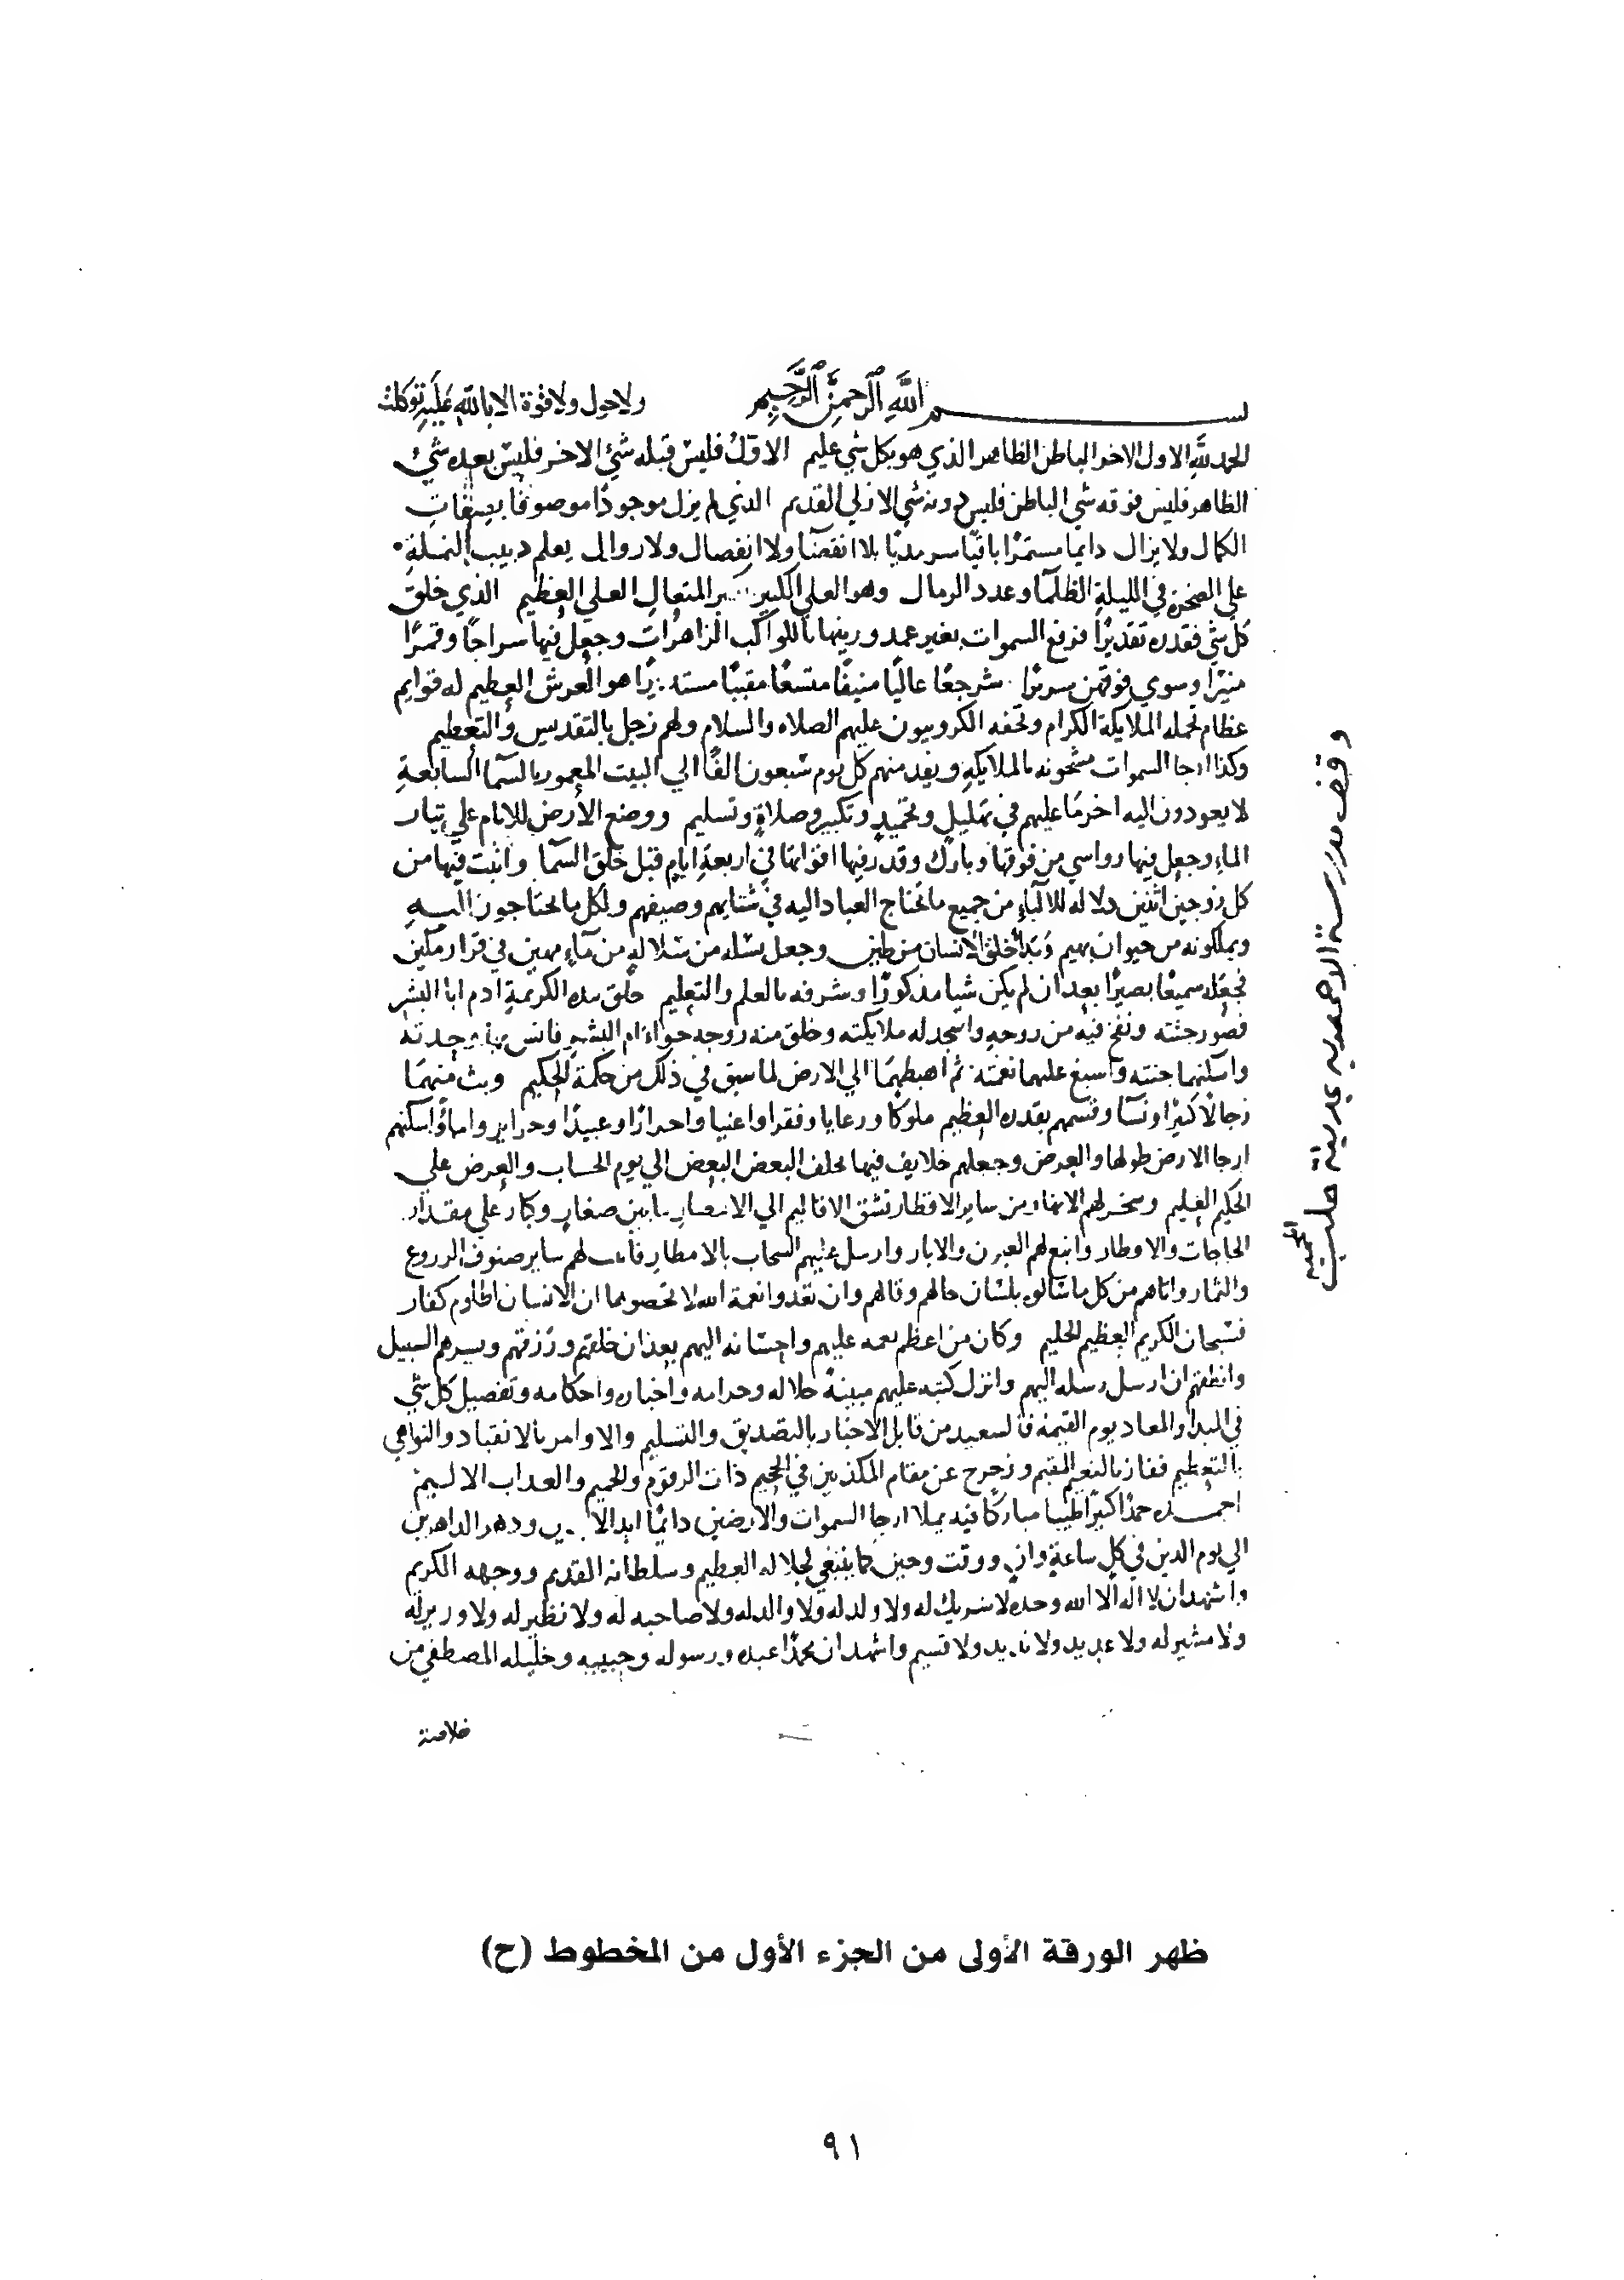 بسم الله الرحمن الرحيم ولا حول ولا قوة الا بالله عليه توكلت
الحمد لله الاول الاخر الباطن الظاهر الذي هو بكل شي عليم الاول فليس قبله شئ الاخر فليس بعده شئ
الظاهر فليس فوقه شي الباطن فليس دونه شي الازلي القديم الذي لم يزل موجودًا موصوفًا بصفات
الكمال ولا يزال دايما مستمرًا باقيًا سرمديًا بلا انقضآ ولا انفصال ولا زوال يعلم دبيب النملة
على الصخرة في الليلة الظلمآ وعدد الرمال وهو العلي الكبير المتعال العلي العظيم الذي خلق
كل شي فقدره تقديرًا فرفع السموات بغير عمد وزينها بالكواكب الزاهرات وجعل فيها سراجًا وقمرًا
منيرًا وسوي فوقهن سريرًا شرجعًا عاليًا منيفًا متسعًا مقببًا مستديرًا هو العرش العظيم له قوايم
عظام تحمله الملايكة الكرام وتحفه الكروبيون عليهم الصلاه والسلام ولهم زجل بالتقديس والتعظيم
وكذا ارجا السموات مشحونه بالملايكه ويفد منهم كل يوم سبعون الفًا الي البيت المعمور بالسمآ السابعة
لا يعودون اليه اخر ما عليهم في تهليل وتحميد وتكبير وصلاة وتسليم ووضع الارض للانام علي تيار
الماء وجعل فيها رواسي من فوقها وبارك وقدر فيها اقواتها في اربعة ايام قبل خلق السمآ وانبت فيها من
كل زوجين اثنين دلاله للالبآء من جميع ما تحتاج العباد اليه في شتايهم وصيفهم ولكل ما يحتاجون اليه
ويملكونه من حيوان بهيم وبدأ خلق الانسان من طين وجعل نسله من سلالة من مآء مهين في قرار مكين
فجعله سميعًا بصيرًا بعد ان لم يكن شيا مذكورًا وشرفه بالعلم والتعليم خلق بيده الكريمة ادم ابا البشر
فصور جثته ونفخ فيه من روحه واسجد له ملايكته وخلق منه زوجه حواء ام البشر فانس بها وحدته
واسكنهما جنته واسبغ عليهما نعمته ثم اهبطهما الي الارض لما سبق في ذلك من حكمة الحكيم وبث منهما
رجالًا كثيرًا ونسآ وقسمهم بقدره العظيم ملوكًا ورعايا وفقرا واغنيا واحرارًا وعبيدًا وحراير وامآء واسكنهم
ارجا الارض طولها والعرض وجعلهم خلايف فيها يخلف البعض البعض الي يوم الحساب والعرض علي
الحكيم العليم وسخر لهم الانهار من ساير الاقطار تشق الاقاليم الي الامصار ما بين صغار وكبار علي مقدار
الحاجات والاوطار وانبع لهم العيون والابار وارسل عليهم السحاب بالامطار فانبت لهم ساير صنوف الزروع
والثمار واتاهم من كل ما سالوه بلسان حالهم وقالهم وان تعدوا نعمة الله لا تحصوها ان الانسان لظلوم كفار
فسبحان الكريم العظيم الحليم وكان من اعظم نعمه عليهم واحسانه اليهم بعد ان خلقهم ورزقهم ويسر لهم السبيل
وانطقهم ان ارسل رسله اليهم وانزل كتبه عليهم مبينة حلاله وحرامه واخباره واحكامه وتفصيل كل شي
في المبدا والمعاد يوم القيمة فالسعيد من قابل الاخبار بالتصديق والتسليم والاوامر بالانقياد والنواهي
بالتعظيم ففاز بالنعيم المقيم وزحزح عن مقام المكذبين في الجحيم ذات الزقوم والحميم والعذاب الاليم
احمده حمدًا كثيرًا طيبا مباركًا فيه يملا ارجا السموات والارضين دائمًا ابد الابدين ودهر الداهرين
الي يوم الدين في كل ساعة وان ووقت وحين كما ينبغي لجلاله العظيم وسلطانه القديم ووجهه الكريم
واشهد ان لا اله الا الله وحده لا شريك له ولا ولد له ولا والد له ولا صاحبه له ولا نظير له ولا وزير له
ولا مشير له ولا عديد ولا نديد ولا قسيم واشهد ان محمدًا عبده ورسوله وحبيبه وخليله المصطفي من
خلاصة
وقف مدرسة الاحمديه بمدينة حلب
المحميه
ظهر الورقة الأولى من الجزء الأول من المخطوط (ح)
٩١